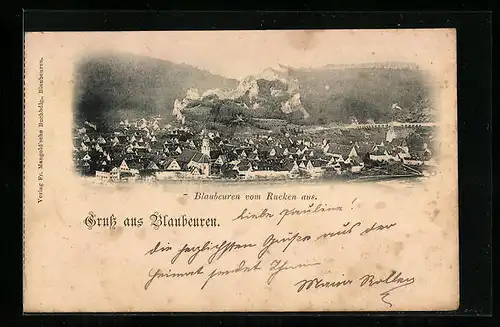 Verlag Fr. Mangold'sche Buchhdlg. Blaubeuren.
Blaubeuren vom Rucken aus.
Gruß aus Blaubeuren.
Liebe Pauline!
die herzlichsten Grüße aus der
Heimat sendet Ihnen
Maria